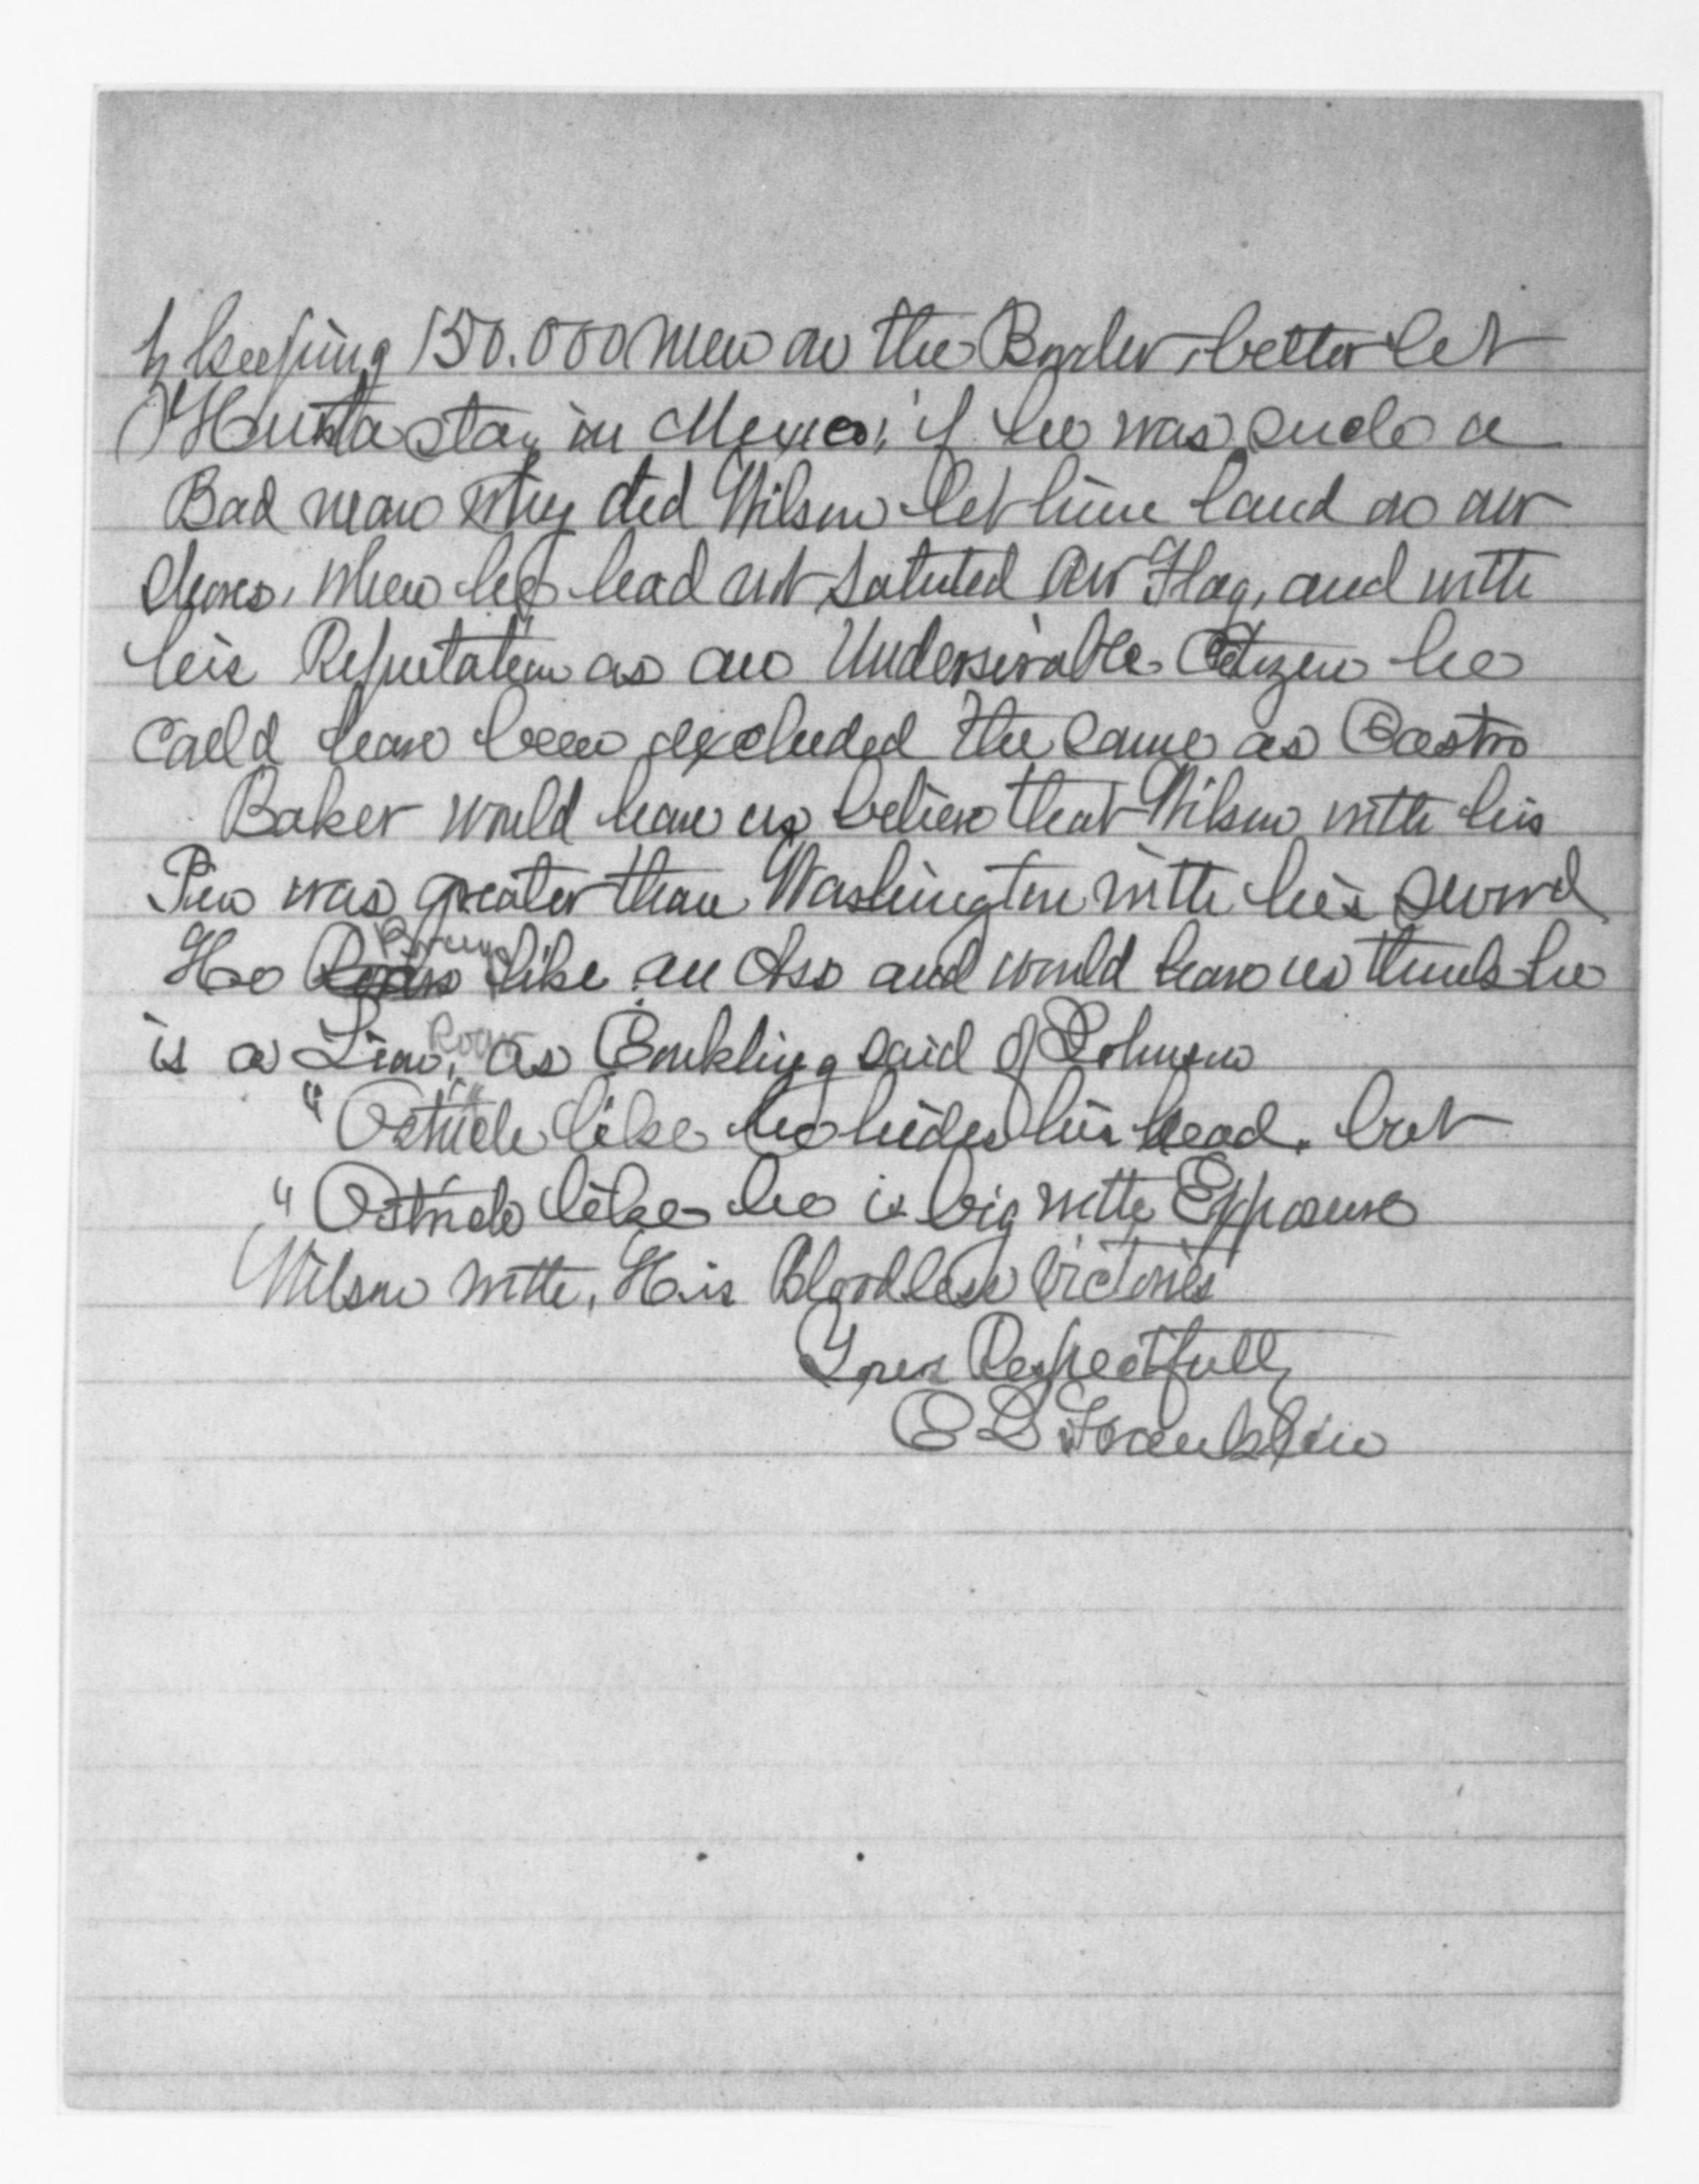 by keeping 150.000 men on the Border, better let
Huerta stay in Mexico; if he was such a
Bad man Why did Wilson let him land on our
shores, when he had not saluted our Flag, and with
his Reputation as an Undersirable Citizen he
could have been excluded the same as Castro
Baker would have us believe that Wilson with his
Pen was greater than Washington with his sword
He Brays like an Ass and would have us think he
is a Lion, Roar as Conkling said of Johnson
"Ostrich like he hides his head. but
"Ostrich like he is big with Exposure
Wilson with, His Bloodless Victories
Yours Respectfully
E D Franklin